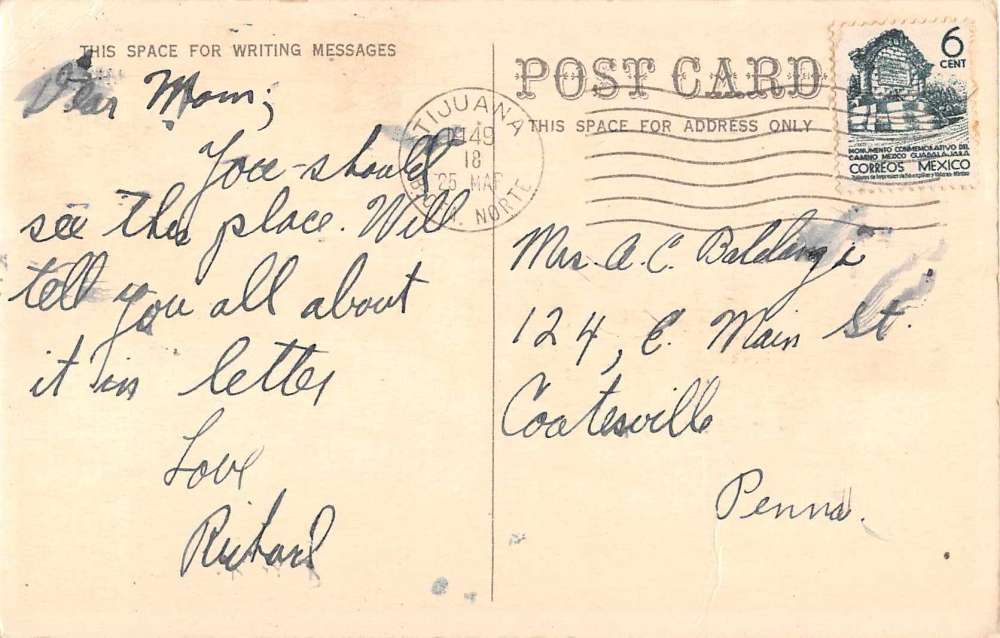 THIS SPACE FOR WRITING MESSAGES
Dear Mom,
You should
see this place. Will
tell you all about
it in letter
Love
Richard
POST CARD
THIS SPACE FOR ADDRESS ONLY
TIJUANA
1949
18
25 MAR
NORTE
6
CENT
MONUMENTO CONMEMORATIVO DEL
CAMINO MEXICO GUADALAJARA
CORREOS MEXICO
Mrs. A. C.
124, E. Main St.
Coatesville
Penna.